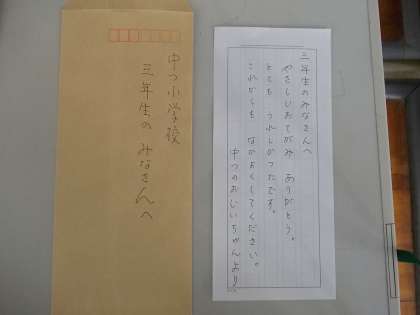 中つ小学校
三年生の みなさんへ
三年生のみなさんへ
やさしいおてがみ ありがとう。
とても うれしかったです。
これからも なかよくしてください。
中つのおじいちゃんより